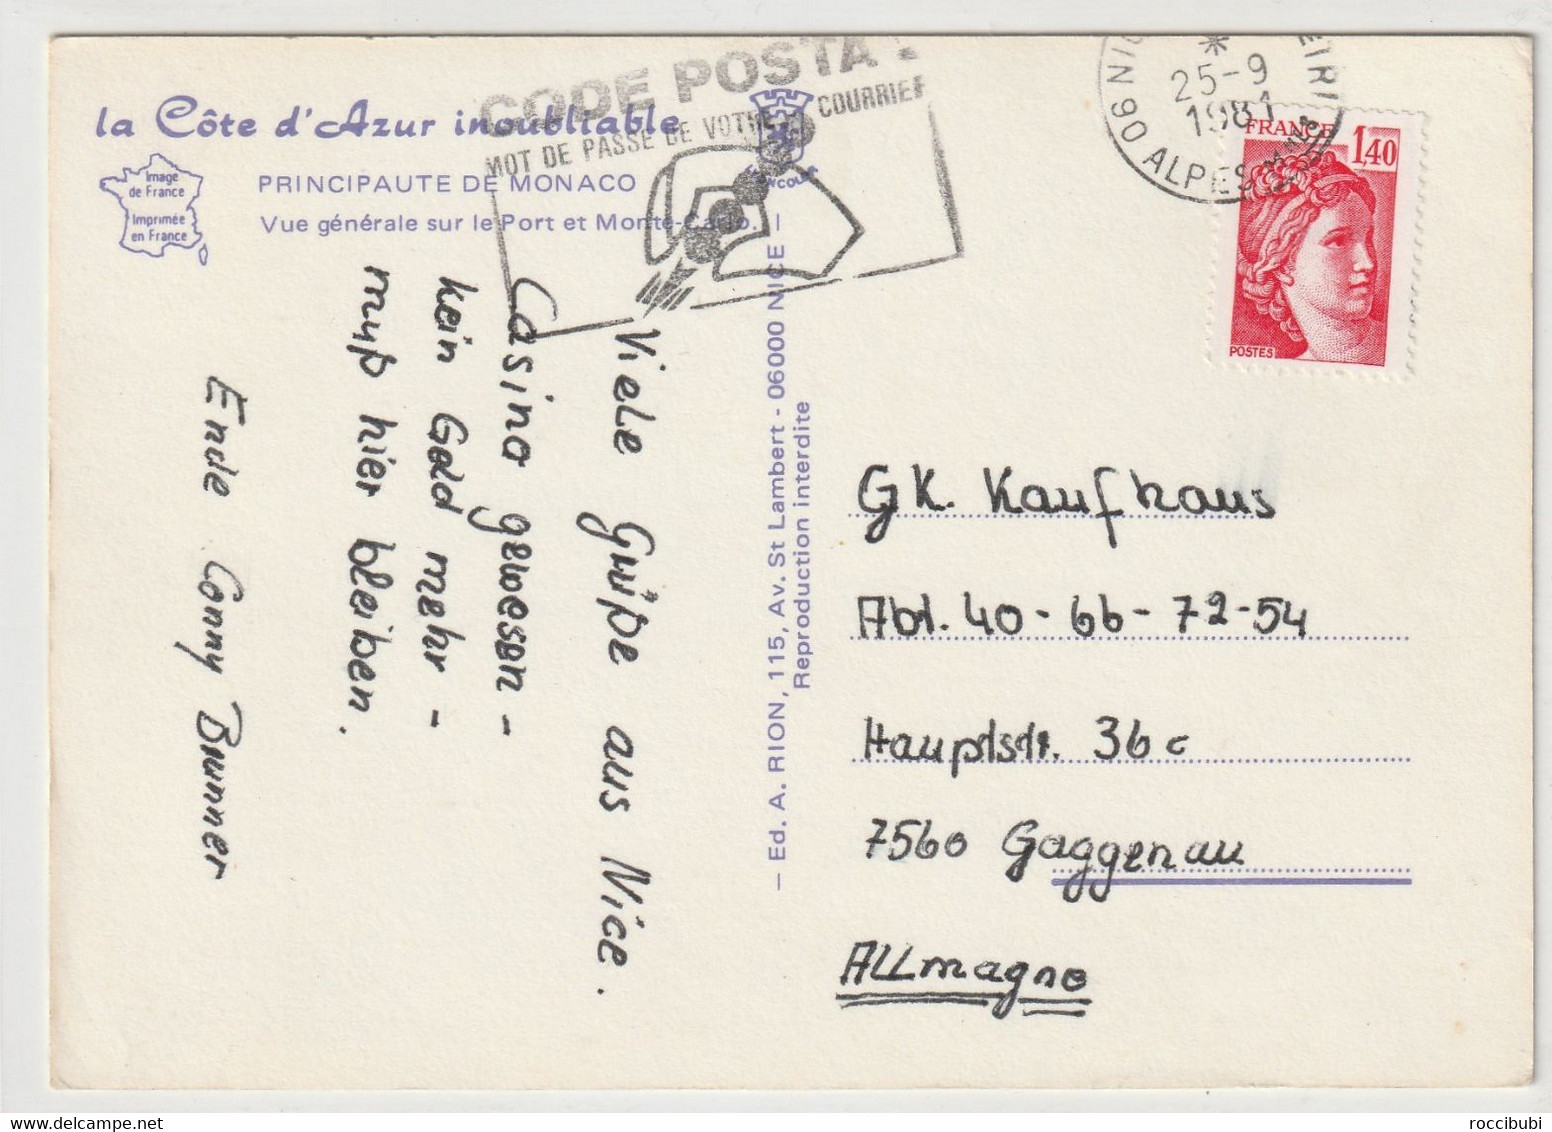 la Côte d'Azur inoubliable
Image
de France
Imprimée
en France
PRINCIPAUTE DE MONACO
Vue générale sur le Port et Monte-Carlo.
CODE POSTA
MOT DE PASSE DE VOTRE COURRIER
25-9
1981
06 ALPES
FRANCE
1,40
POSTES
Viele Grüße aus Nice.
Casino gewesen -
kein Geld mehr -
muß hier bleiben.
Ende Conny Brunner
— Ed. A. RION, 115, Av. St Lambert - 06000 NICE —
Reproduction interdite
GK. Kaufhaus
Abt. 40-66-72-54
Hauptstr. 36c
7560 Gaggenau
Allmagne
roccibubi